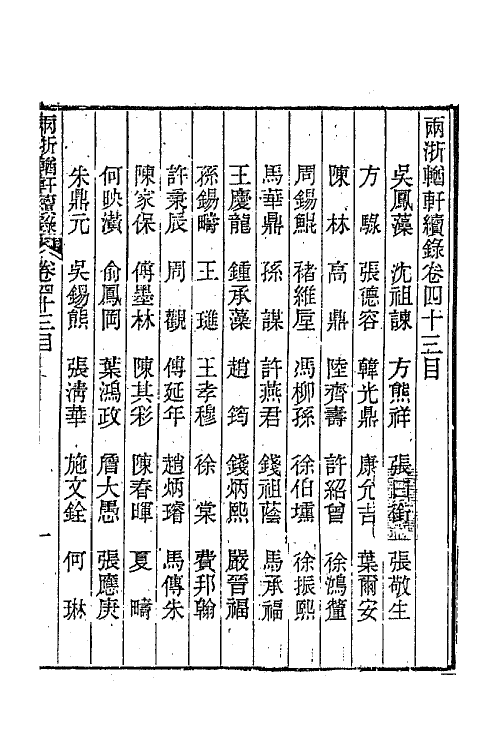 兩浙輶軒續錄卷四十三目
吳鳳藻 沈祖諫 方熊祥 張日銜 張敬生
方騄 張德容 韓光鼎 康允吉 葉爾安
陳林 高鼎 陸齊壽 許紹曾 徐鴻釐
周錫鯤 褚維垕 馮柳孫 徐伯壎 徐振熙
馬華鼎 孫謀 許燕君 錢祖蔭 馬承福
王慶龍 鍾承藻 趙筠 錢炳熙 嚴晉福
孫錫疇 王璡 王孝穆 徐棠 費邦翰
許秉辰 周觀 傅延年 趙炳璿 馬傳朱
陳家保 傅墨林 陳其彩 陳春暉 夏疇
何映潢 俞鳳岡 葉鴻政 詹大愚 張應庚
朱鼎元 吳錫熊 張淸華 施文銓 何琳
兩浙輶軒續錄 卷四十三目 一